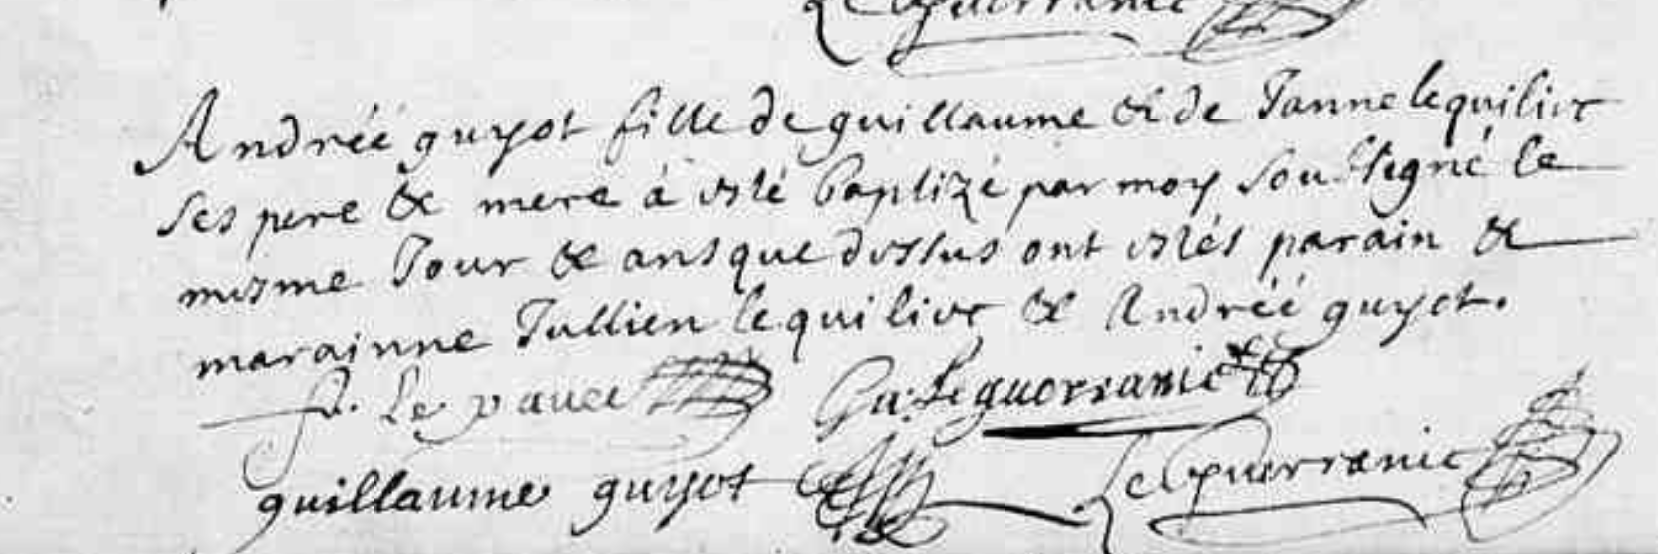 Le Guerranic
Andréé guyot fille de guillaume & de Janne lequilivc
ses pere & mere á esté baptizé par moy soubsigné le
mesme Jour & ans que dessus ont estés parain &
marainne Jullien lequilivc & Andréé guyot.
Le Gu: Le guerranic
guillaume guyot Le Guerranic